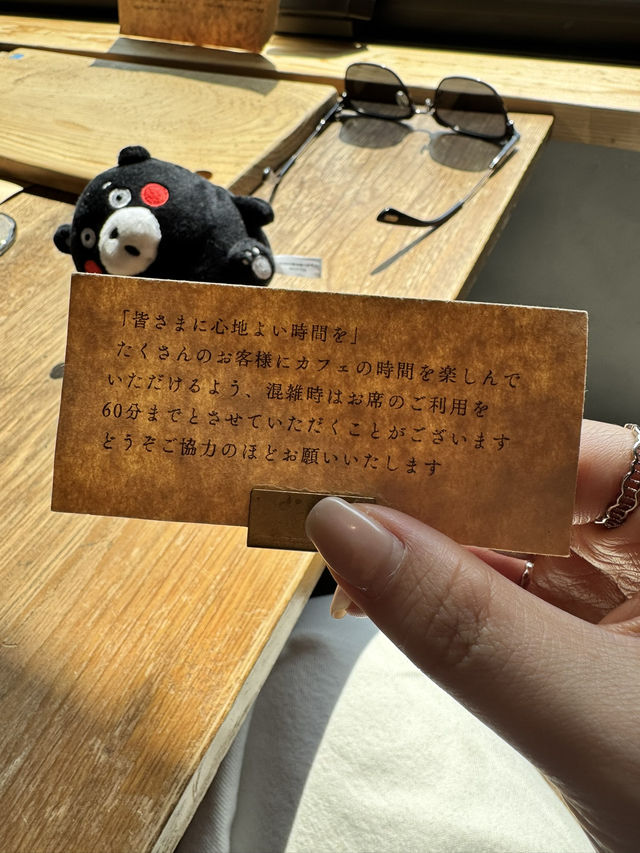 「皆さまに心地よい時間を」
たくさんのお客様にカフェの時間を楽しんで
いただけるよう、混雑時はお席のご利用を
60分までとさせていただくことがございます
どうぞご協力のほどお願いいたします